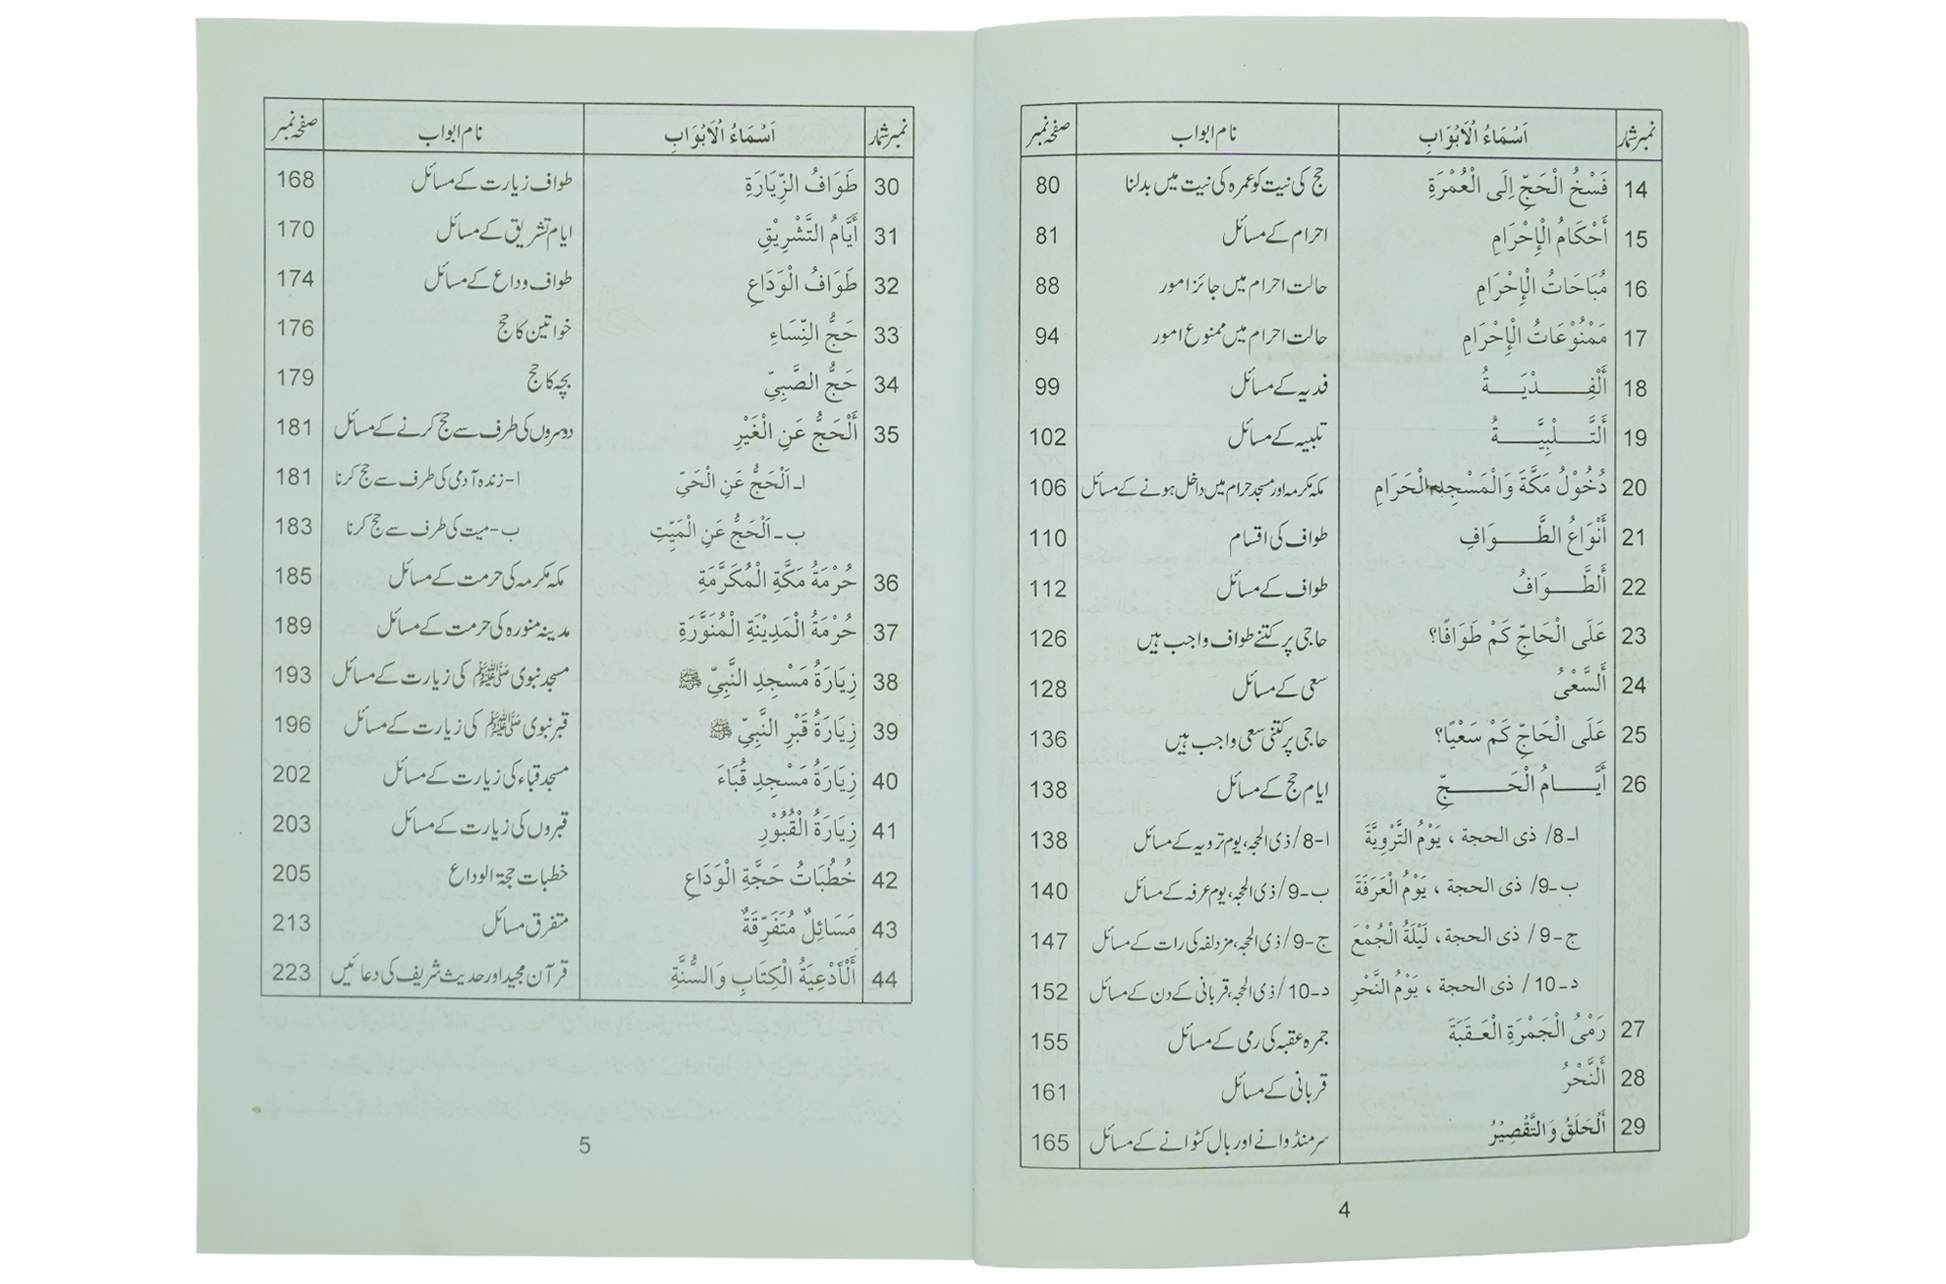 نمبر شمار اَسْمَاءُ الْاَبْوَابِ نام ابواب صفحہ نمبر
14 فَسْخُ الْحَجِّ اِلَى الْعُمْرَةِ حج کی نیت کو عمرہ کی نیت میں بدلنا 80
15 أَحْكَامُ الْإِحْرَامِ احرام کے مسائل 81
16 مُبَاحَاتُ الْإِحْرَامِ حالت احرام میں جائز امور 88
17 مَمْنُوْعَاتُ الْإِحْرَامِ حالت احرام میں ممنوع امور 94
18 أَلْفِـــدْيَـــةُ فدیہ کے مسائل 99
19 أَلتَّـــلْبِيَّـــةُ تلبیہ کے مسائل 102
20 دُخُوْلُ مَكَّةَ وَالْمَسْجِدِ الْحَرَامِ مکہ مکرمہ اور مسجد حرام میں داخل ہونے کے مسائل 106
21 أَنْوَاعُ الطَّـــوَافِ طواف کی اقسام 110
22 أَلطَّـــوَافُ طواف کے مسائل 112
23 عَلَى الْحَاجِّ كَمْ طَوَافًا؟ حاجی پر کتنے طواف واجب ہیں 126
24 أَلسَّعْیُ سعی کے مسائل 128
25 عَلَى الْحَاجِّ كَمْ سَعْيًا؟ حاجی پر کتنی سعی واجب ہیں 136
26 أَيَّـــامُ الْحَـــجِّ ایام حج کے مسائل 138
ا۔8/ ذی الحجة ، يَوْمُ التَّرْوِيَّةَ ا-8/ذی الحجہ، یوم ترویہ کے مسائل 138
ب-9/ ذی الحجة ، يَوْمُ الْعَرَفَةَ ب-9/ذی الحجہ، یوم عرفہ کے مسائل 140
ج-9/ ذی الحجة ، لَيْلَةُ الْجُمْعَ ج-9/ذی الحجہ، مزدلفہ کی رات کے مسائل 147
د-10/ ذی الحجة ، يَوْمُ النَّحْرِ د-10/ذی الحجہ، قربانی کے دن کے مسائل 152
27 رَمْیُ الْجَمْرَةِ الْعَـقَبَةَ جمرہ عقبہ کی رمی کے مسائل 155
28 أَلنَّحْرُ قربانی کے مسائل 161
29 أَلْحَلَقُ وَالتَّقْصِيْرُ سر منڈوانے اور بال کٹوانے کے مسائل 165
4
نمبر شمار اَسْمَاءُ الْاَبْوَابِ نام ابواب صفحہ نمبر
30 طَوَافُ الزِّيَارَةِ طواف زیارت کے مسائل 168
31 أَيَّامُ التَّشْرِيْقِ ایام تشریق کے مسائل 170
32 طَوَافُ الْوَدَاعِ طواف وداع کے مسائل 174
33 حَجُّ النِّسَاءِ خواتین کا حج 176
34 حَجُّ الصَّبِيِّ بچہ کا حج 179
35 أَلْحَجُّ عَنِ الْغَيْرِ دوسروں کی طرف سے حج کرنے کے مسائل 181
ا۔ اَلْحَجُّ عَنِ الْحَيِّ ا-زندہ آدمی کی طرف سے حج کرنا 181
ب۔ اَلْحَجُّ عَنِ الْمَيِّتِ ب-میت کی طرف سے حج کرنا 183
36 حُرْمَةُ مَكَّةِ الْمُكَرَّمَةِ مکہ مکرمہ کی حرمت کے مسائل 185
37 حُرْمَةُ الْمَدِيْنَةِ الْمُنَوَّرَةِ مدینہ منورہ کی حرمت کے مسائل 189
38 زِيَارَةُ مَسْجِدِ النَّبِيِّ ﷺ مسجد نبوی ﷺ کی زیارت کے مسائل 193
39 زِيَارَةُ قَبْرِ النَّبِيِّ ﷺ قبر نبوی ﷺ کی زیارت کے مسائل 196
40 زِيَارَةُ مَسْجِدِ قُبَاءَ مسجد قباء کی زیارت کے مسائل 202
41 زِيَارَةُ الْقُبُوْرِ قبروں کی زیارت کے مسائل 203
42 خُطُبَاتُ حَجَّةِ الْوَدَاعِ خطبات حجۃ الوداع 205
43 مَسَائِلٌ مُتَفَرِّقَةٌ متفرق مسائل 213
44 أَلْأَدْعِيَةُ الْكِتَابِ وَالسُّنَّةِ قرآن مجید اور حدیث شریف کی دعائیں 223
5